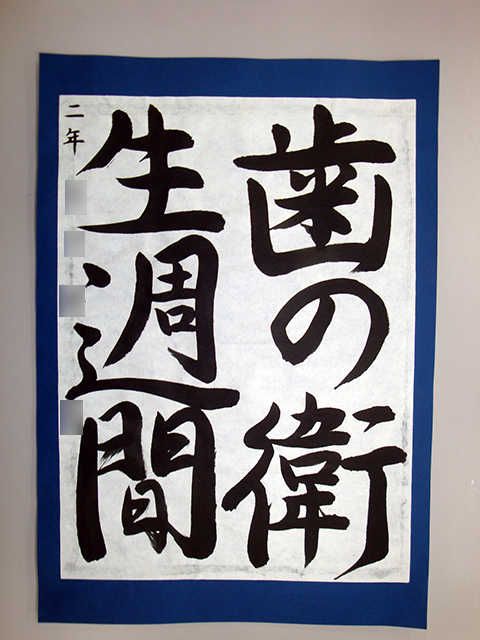 歯の衛
生週間
二年